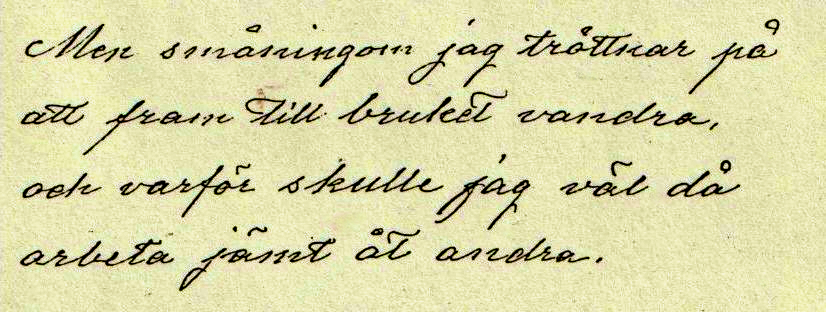 Men småningom jag tröttnar på
att fram till bruket vandra,
och varför skulle jag väl då
arbeta jämt åt andra.